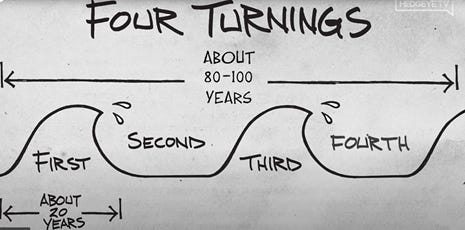 HEDGEYE TV
FOUR TURNINGS
ABOUT
80-100
YEARS
FIRST
SECOND
THIRD
FOURTH
ABOUT
20
YEARS